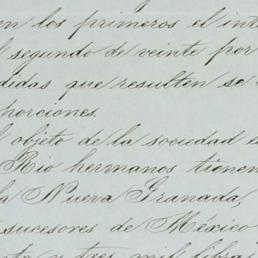 en los primeros el int
l segundo de veinte por
didas que resulten se
porciones.
l objeto de la sociedad e
Rio hermanos tienen
la Nueva Granada,
sucesores de México
ta y tres mil libras